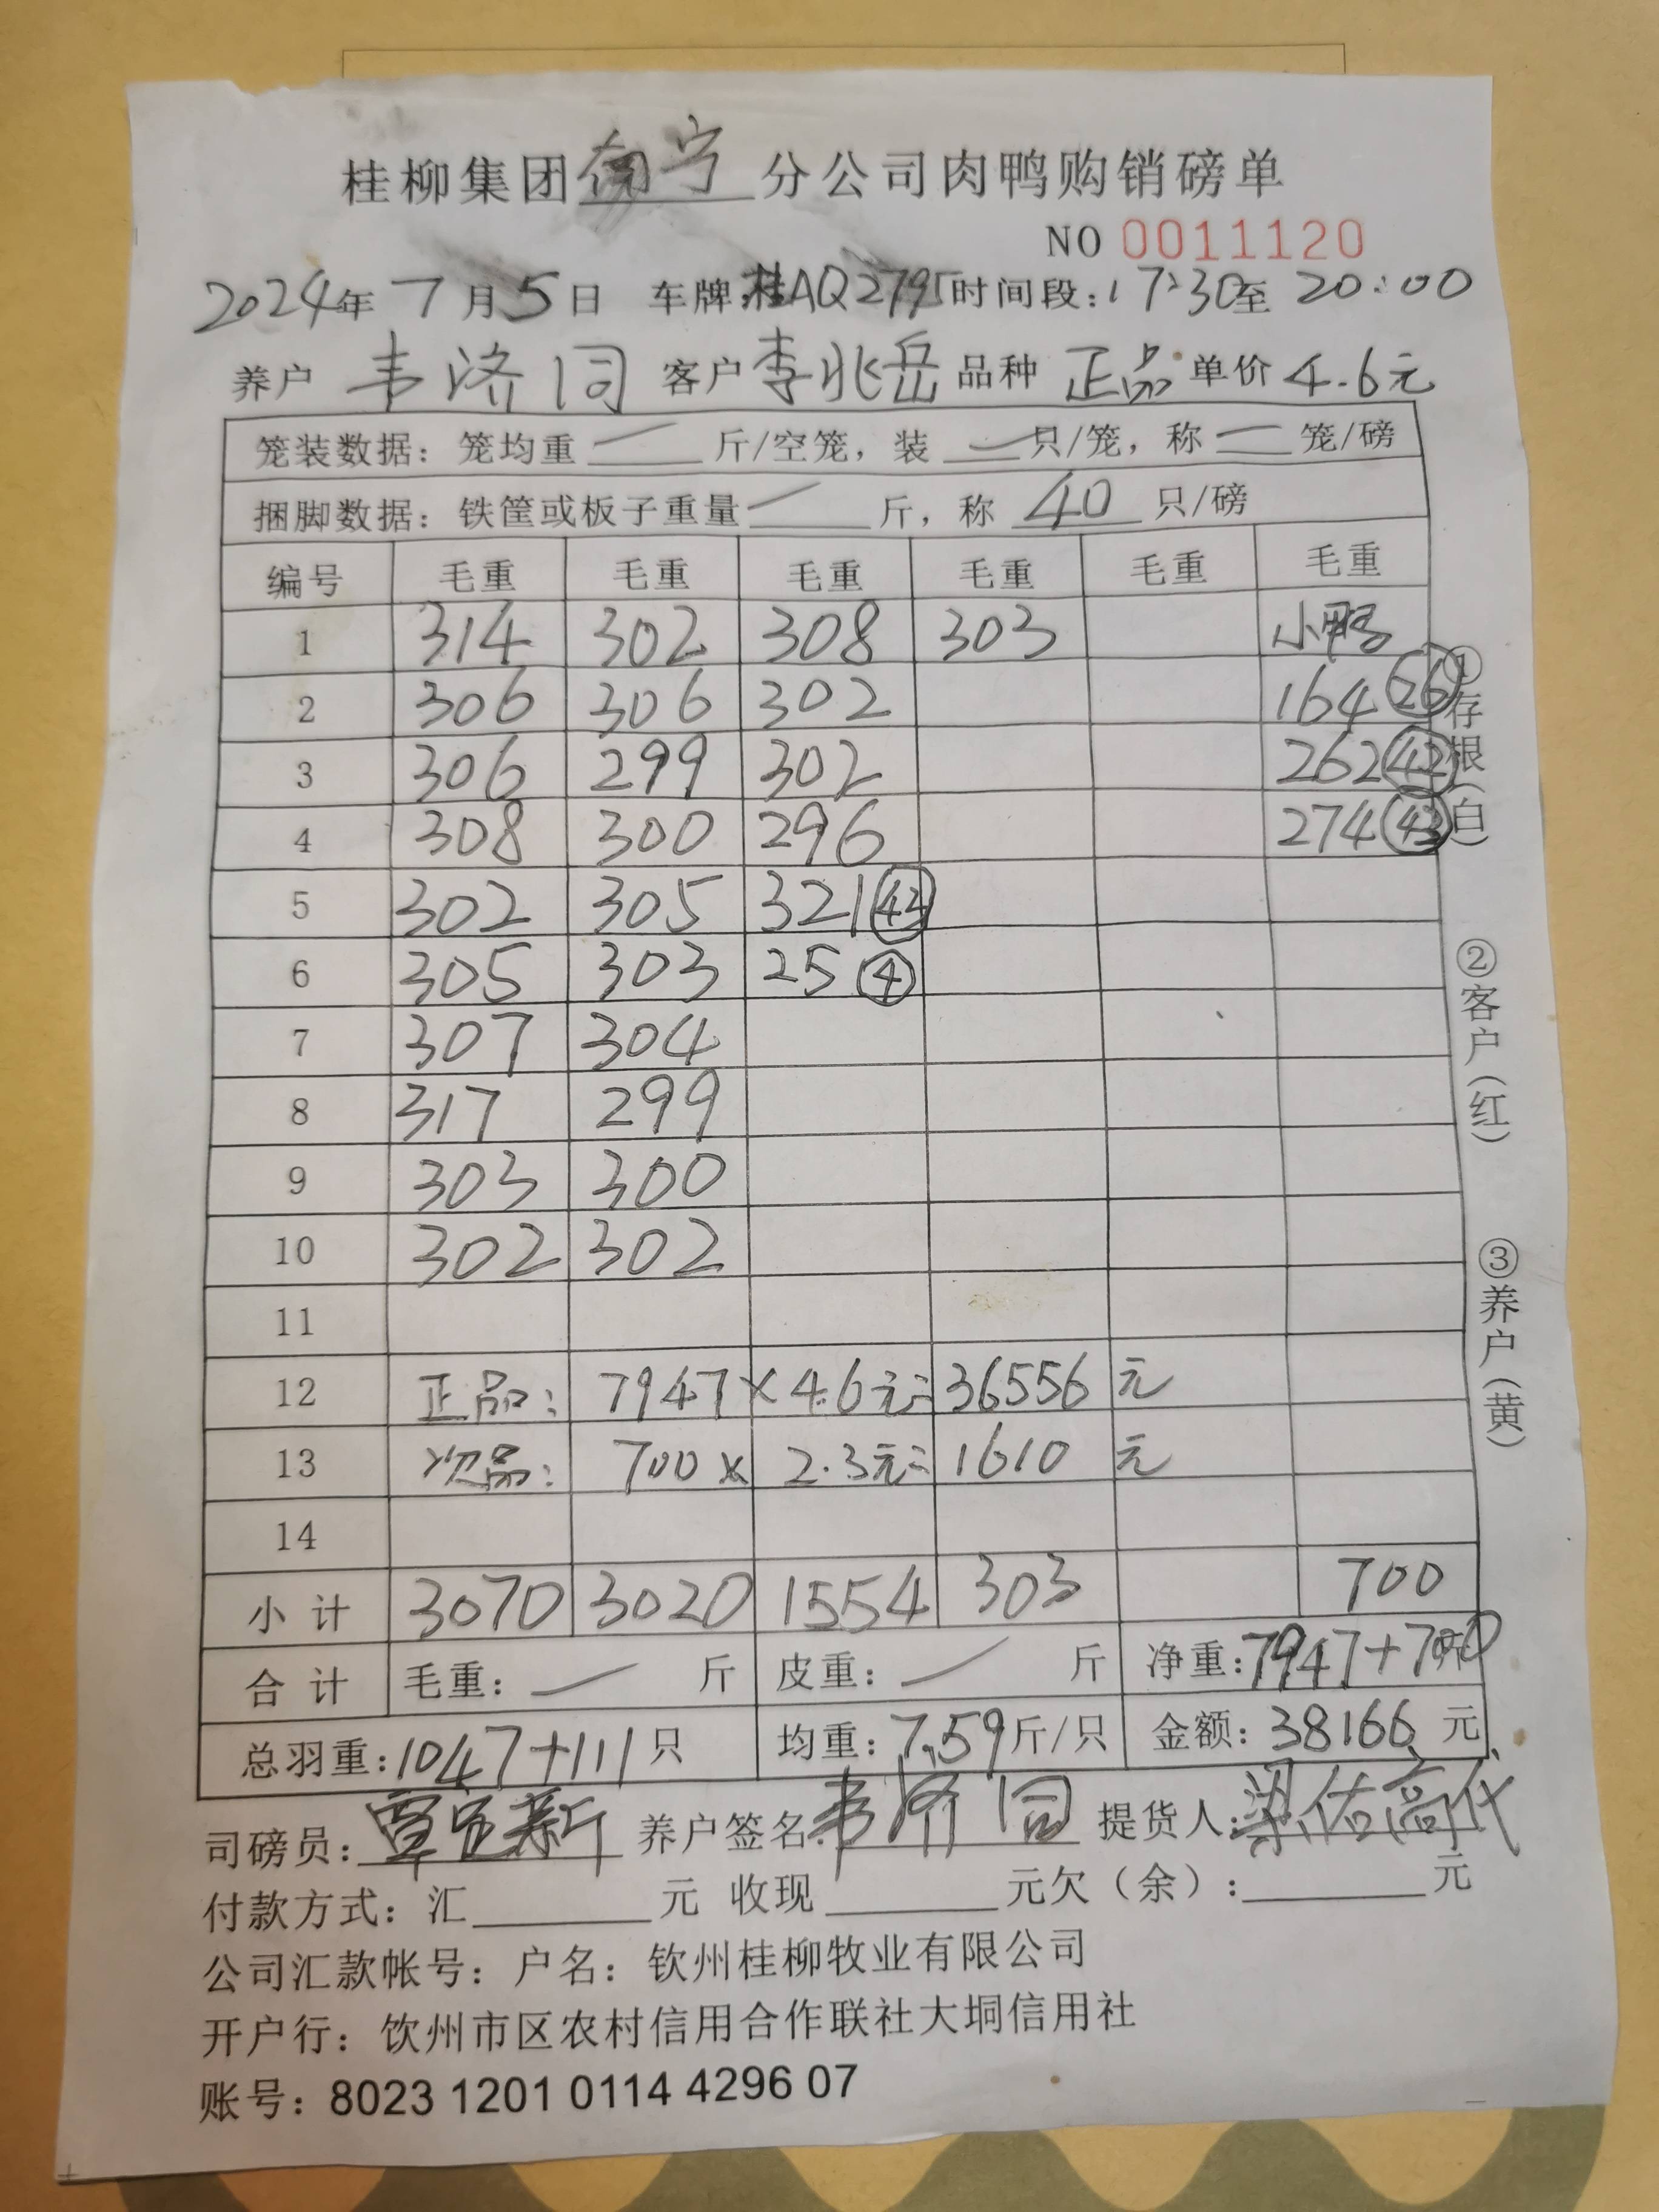 桂柳集团南宁分公司肉鸭购销磅单
NO 0011120
2024年 7月5日 车牌:桂AQ2795 时间段:17:30至 20:00
养户 韦济同 客户 李兆岳 品种 正品 单价 4.6元
笼装数据: 笼均重 — 斤/空笼, 装 — 只/笼, 称 — 笼/磅
捆脚数据: 铁筐或板子重量 — 斤, 称 40 只/磅
编号 毛重 毛重 毛重 毛重 毛重 毛重
1 314 302 308 303 小鸭
2 306 306 302 164 (26)
3 306 299 302 262 (42)
4 308 300 296 274 (43)
5 302 305 321 (43)
6 305 303 25 (4)
7 307 304
8 317 299
9 303 300
10 302 302
11
12 正品: 7947 × 4.6元= 36556 元
13 次品: 700 × 2.3元= 1610 元
14
小计 3070 3020 1554 303 700
合计 毛重: — 斤 皮重: — 斤 净重:7947+700斤
总羽重:1047+111只 均重:7.59斤/只 金额:38166 元
司磅员: 养户签名:韦济同 提货人:梁佑高代
付款方式: 汇 元 收现 元欠(余): 元
公司汇款帐号: 户名: 钦州桂柳牧业有限公司
开户行: 饮州市区农村信用合作联社大垌信用社
账号: 8023 1201 0114 4296 07
①存根(白)
②客户(红)
③养户(黄)